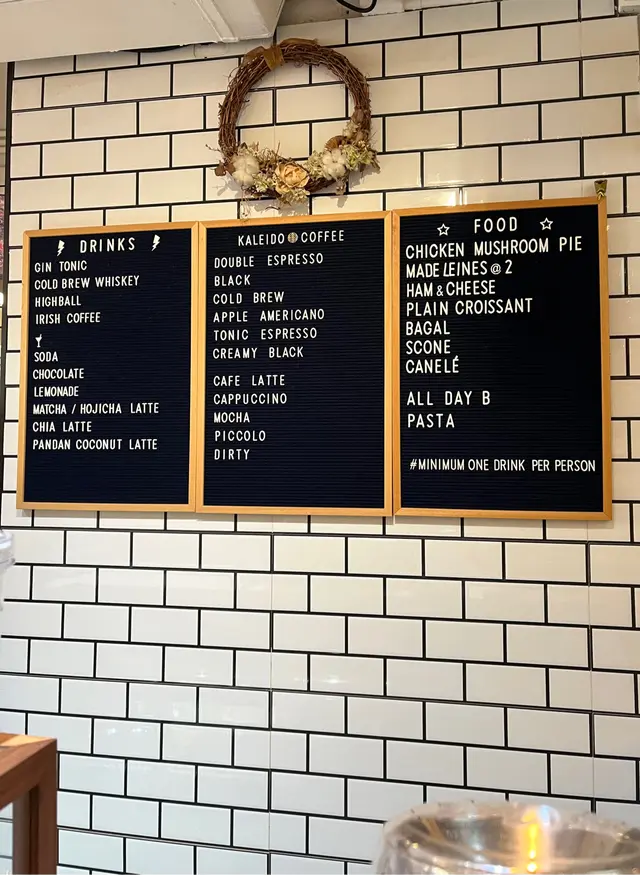 DRINKS
GIN TONIC
COLD BREW WHISKEY
HIGHBALL
IRISH COFFEE
SODA
CHOCOLATE
LEMONADE
MATCHA / HOJICHA LATTE
CHIA LATTE
PANDAN COCONUT LATTE
KALEIDO COFFEE
DOUBLE ESPRESSO
BLACK
COLD BREW
APPLE AMERICANO
TONIC ESPRESSO
CREAMY BLACK
CAFE LATTE
CAPPUCCINO
MOCHA
PICCOLO
DIRTY
FOOD
CHICKEN MUSHROOM PIE
MADELEINES @ 2
HAM & CHEESE
PLAIN CROISSANT
BAGAL
SCONE
CANELÉ
ALL DAY B
PASTA
#MINIMUM ONE DRINK PER PERSON